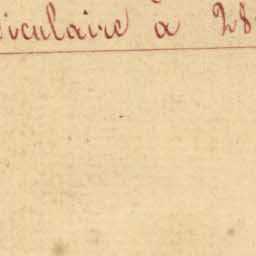 diculaire à 28